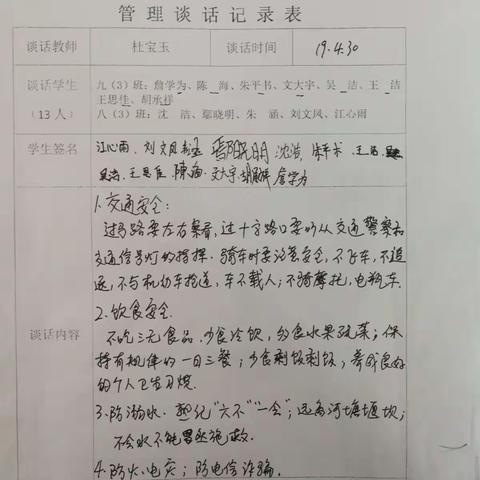 管理谈话记录表
谈话教师 杜宝玉 谈话时间 19.4.30
谈话学生 九（3）班：詹学为、陈 海、朱平书、文大宇、吴 洁、王 洁
（13人） 王思佳、胡承祥
八（3）班：沈 洁、鄢晓明、朱 涵、刘文凤、江心雨
学生签名 江心雨、刘文凤 鄢晓明 沈洁、朱平书、王洁、
吴洁、王思佳、陈海、文大宇 胡承祥 詹学为
1.交通安全：
过马路要左右察看，过十字路口要听从交通警察和
交通信号灯的指挥。骑车时要注意安全，不飞车，不追
逐，不与机动车抢道，车不载人；不骑摩托，电瓶车.
2.饮食安全.
谈话内容
不吃三无食品.少食冷饮，多食水果蔬菜；保
持有规律的一日三餐；少食剩饭剩饭，养成良好
的个人卫生习惯.
3.防溺水.熟记“六不”“一会”；远离河塘堰坝；
不会水不能冒然施救.
4.防火、电灾；防电信诈骗.